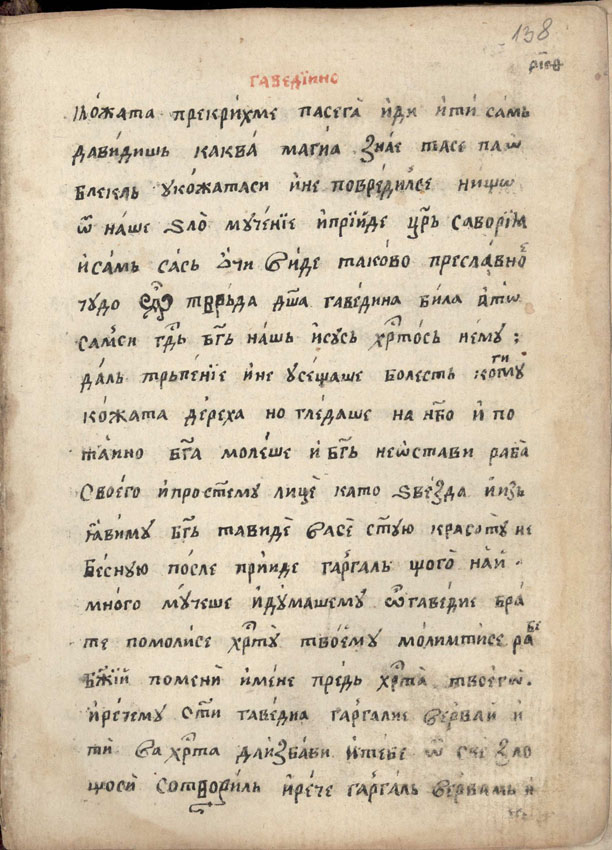 138
рл҃ѳ
гаведїино
кѡ́жата прекри́хме пасега̀ и҆ди и҆ти самь
давидишь каква́ маги́а ꙁна́е тасе пла̀ѡ
блекаль у кожатаси и҆не повредилсе нищѡ
ѿ на́ше ѕло̀ муче́нїе и҆прїи́де цр҃ь саворїи
и҆самь сась ѻ҆чи виде таково преславно́е
чудо тврьда дш҃а гаведина била а҆тѡ
самси гдⷭ҇ь бг҃ь на́шь и҆сусь хрⷭ҇то́сь нему ;
даль трьпе́нїе и҆не усе́щаше болесть когиму
кожата де́реха но гле́даше на нб҃о и҆ по
та́ино бг҃а моле́ше и҆ бг҃ь неѡ҆стави раба̀
своего и҆просте́му лицѐ като ѕвеꙁда и҆иꙁь
ꙗ҆виму бг҃ь тавидѐ васе ст҃ую красоту не
бе́сную по́сле прїиде гарга́ль що́го на́й
много му́чеше и҆думашему ѿ гаведие бра́
те помолисе хрⷭ҇ту̀ твое́му молимтисе рабе
бж҃їй поменѝ и҆мене пре́дь хрⷭ҇та̀ твоегѡ̀.
и҆ре́чему ст҃и гаведиа гаргалие верваи и҆
ти ва хрⷭ҇та̀ да иꙁбави и҆тебе ѿ све ꙁло
щоси̏ сотворѝль и҆ре́че гарга́ль вервамь и҆